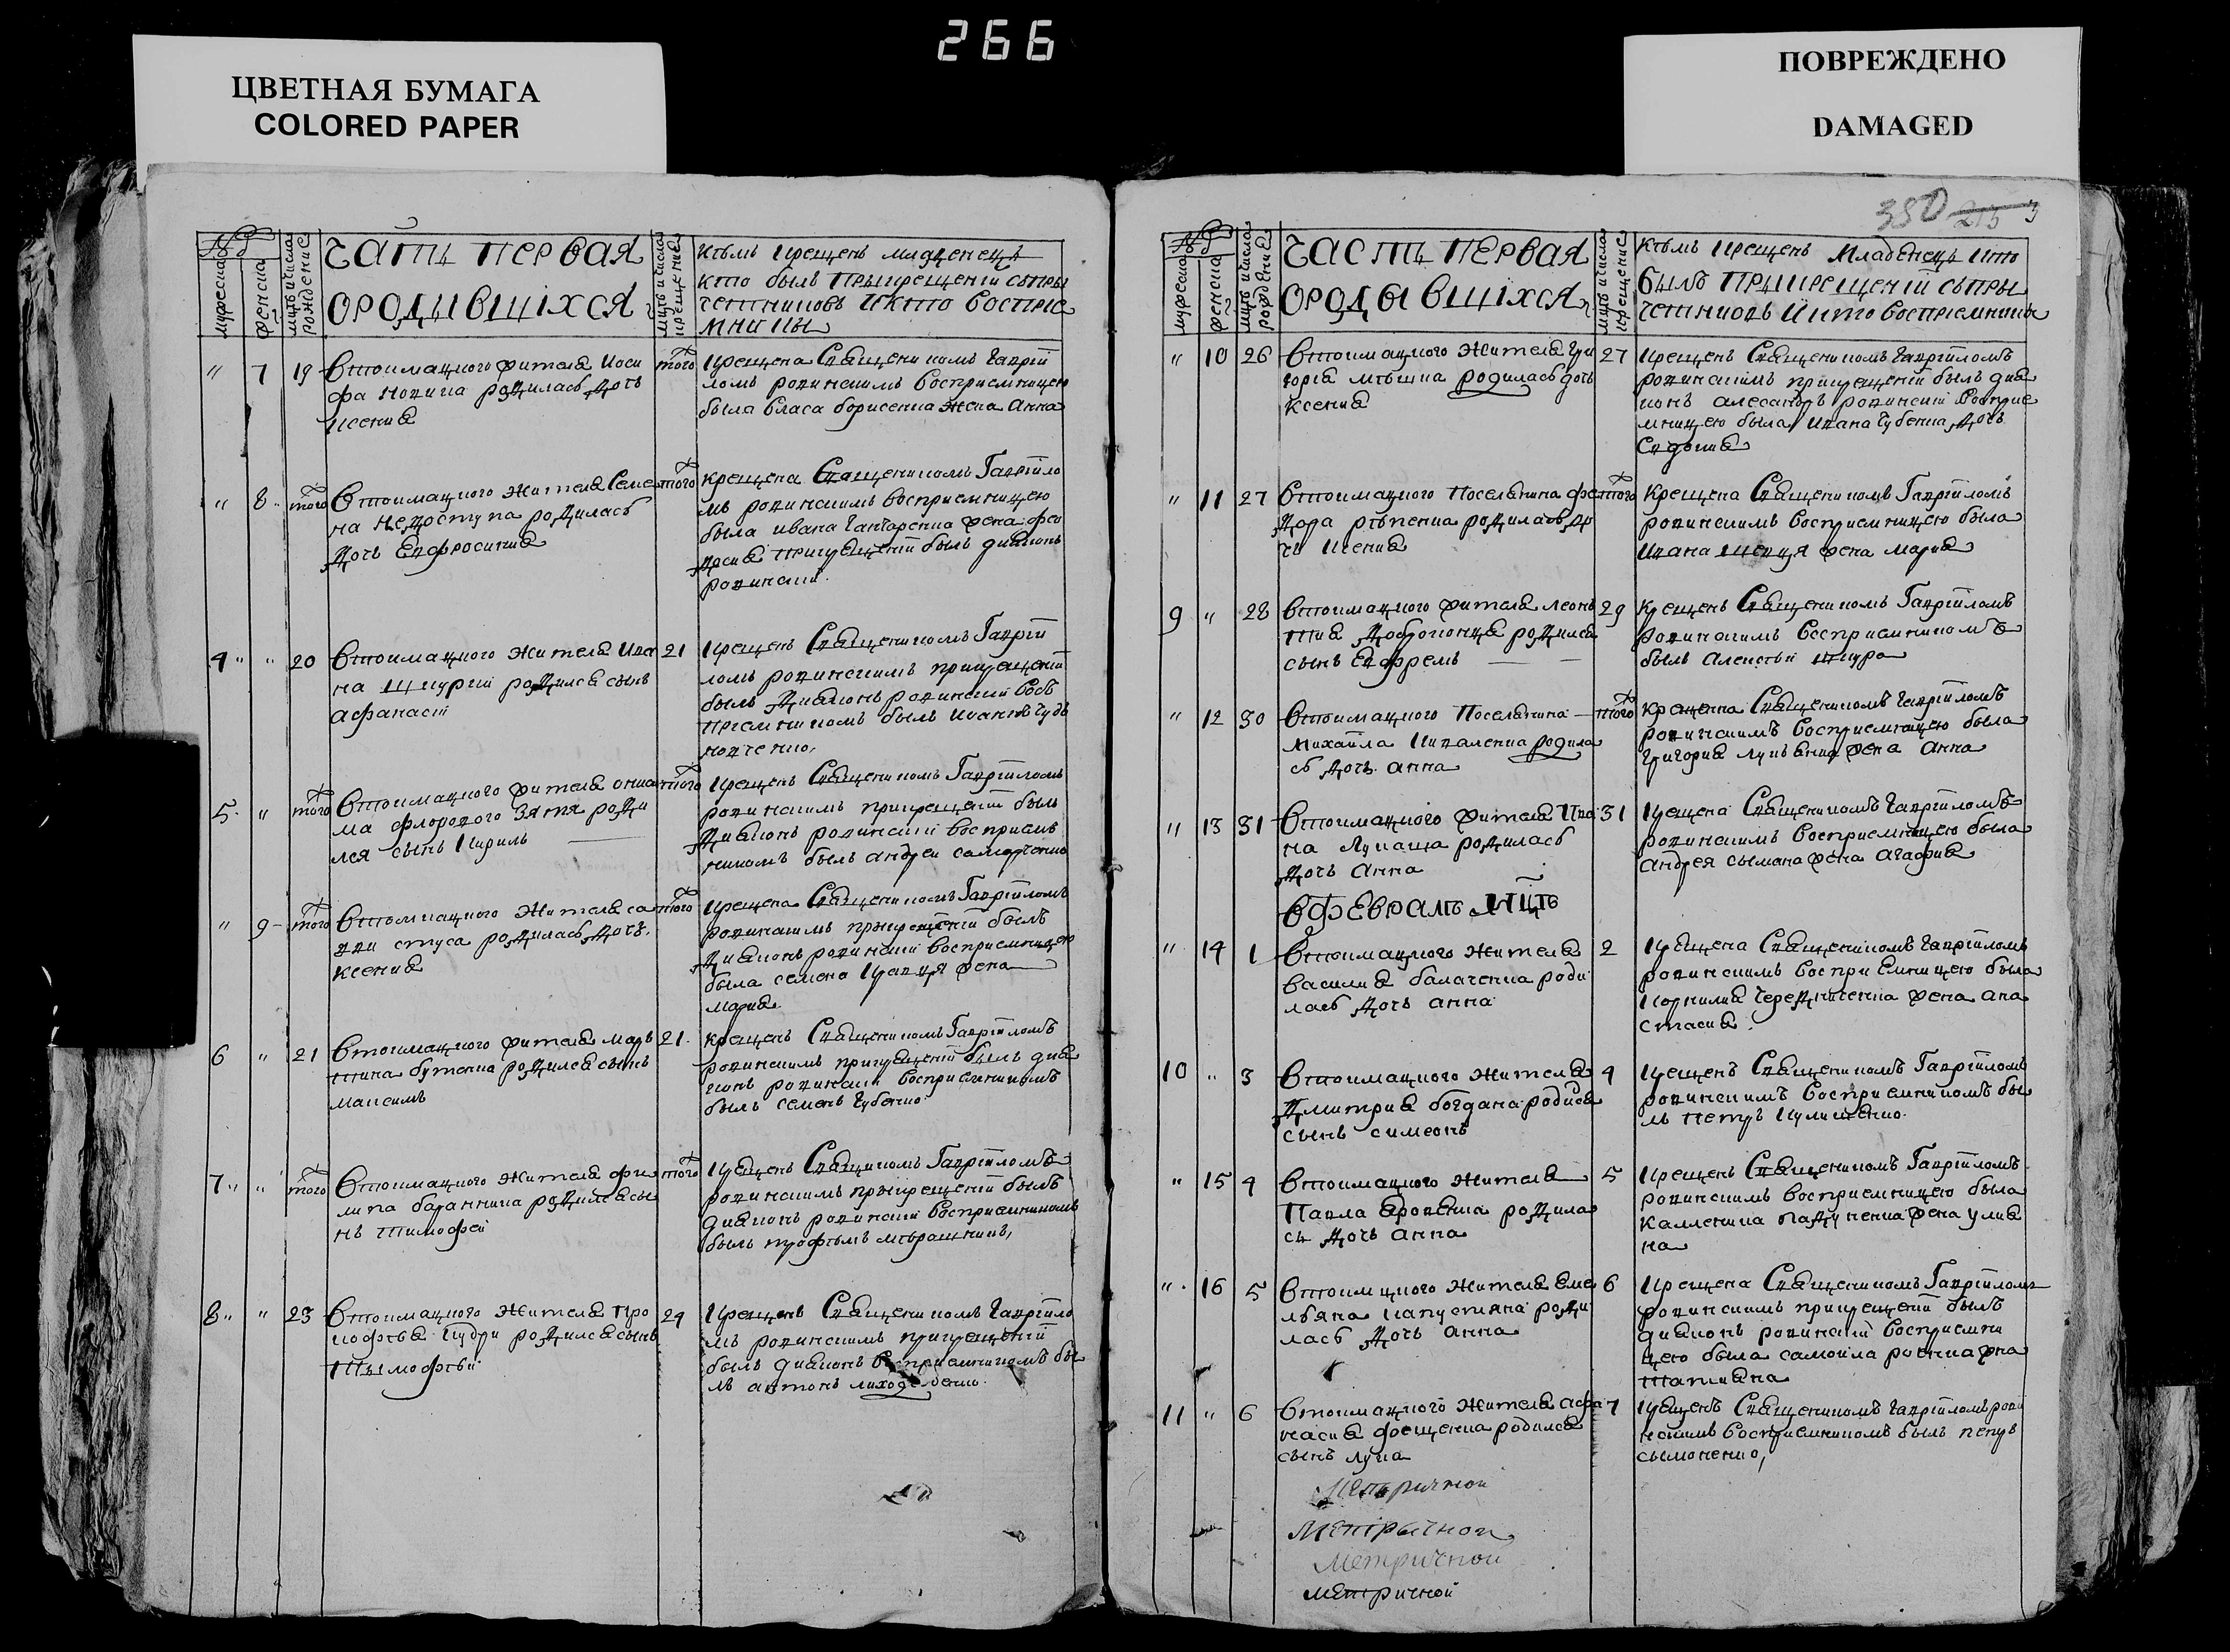 266
ЦВЕТНАЯ БУМАГА
COLORED PAPER
ПОВРЕЖДЕНО
DAMAGED
№
мужеска
женска
рождение
часть первая
ородившіхся
крещение
кѣмъ крещенъ младенецъ
кто былъ при крещеніи
и кто восприе
мники
7 19 Втоимацкого жителя Иоси
фа родилась дочь
ксения
того крещена Священикомъ Гаврїи
ломъ ровинскимъ восприемницею
была власа борисенка жена анна
8 того Втоимацкого жителя Семе
на недоступа родилась
дочь Евфросиния
того крещена Священикомъ Гавріило
мъ ровинскимъ восприемницею
была ивана ганчаренка жена фео
досия при крещеніи былъ диаконъ
ровинскій
4 20 Втоимацкого жителя Ива
на шкурки родился сынъ
афанасій
21 крещенъ Священикомъ Гавріи
ломъ ровинскимъ при крещеніи
былъ диаконъ ровинскій вос
приемникомъ былъ
5 того Втоимацкого жителя
зятя роди
лся сынъ Кирилъ
того крещенъ Священикомъ Гавріиломъ
ровинскимъ при крещеніи былъ
диаконъ ровинскій восприем
никомъ былъ андрей
9 того Втоимацкого жителя са
ввы стуса родилась дочь
ксения
того крещена Священикомъ Гавріиломъ
ровинскимъ при крещеніи былъ
диаконъ ровинскій восприемницею
была семена кравця жена
мария
6 21 Втоимацкого жителя мар
тина бутенка родился сынъ
максимъ
21 крещенъ Священикомъ Гавріиломъ
ровинскимъ при крещеніи былъ диа
конъ ровинскій восприемникомъ
былъ семенъ губенко
7 того Втоимацкого жителя фи
липа баранника родился сы
нъ тимофей
того крещенъ Священикомъ Гавріиломъ
ровинскимъ при крещеніи былъ
диаконъ ровинскій восприемникомъ
былъ трофимъ мѣрошникъ
8 23 Втоимацкого жителя про
кофѣя кудри родился сынъ
тымофѣй
24 крещенъ Священикомъ Гавріило
мъ ровинскимъ при крещеніи
былъ диаконъ восприемникомъ бы
лъ антонъ
350 213 3
№
мужеска
женска
рождения
часть первая
ородывшіхся
крещение
кѣмъ крещенъ младенецъ и кто
былъ при крещеніи
и кто восприемники
10 26 Втоимацкого жителя гри
гория мѣшка родилась дочь
ксения
27 крещенъ Священикомъ Гавріиломъ
ровинскимъ при крещеній былъ диа
конъ алесандръ ровинскій восприе
мницею была ивана губенка дочь
Евдокия
11 27 Втоимацкого поселянина фео
дора рѣпенка родилась до
чь ксения
того крещена Священикомъ Гавріиломъ
ровинскимъ восприемницею была
ивана шевця жена мария
9 28 Втоимацкого жителя леон
тия доброгонца родился
сынъ Ефремъ
29 крещенъ Священикомъ Гавріиломъ
ровинскимъ восприемникомъ
былъ алексѣй шкура
12 30 Втоимацкого поселянина
михаила родила
сь дочь анна
того крещенна Священикомъ Гавріиломъ
ровинскимъ восприемницею была
григория жена анна
13 31 Втоимацкого жителя ива
на лукаша родилась
дочь анна
31 крещена Священикомъ Гавріиломъ
ровинскимъ восприемницею была
андрея сымана жена агафия
в феврале мцѣ
14 1 Втоимацкого жителя
василия балаченка роди
лась дочь анна
2 крещена Священикомъ Гавріиломъ
ровинскимъ восприемницею была
корнилия чередниченка жена ана
стасия
10 3 Втоимацкого жителя
дмитрия богдана родися
сынъ симеонъ
4 крещенъ Священикомъ Гавріиломъ
ровинскимъ восприемникомъ бы
лъ петръ кулишенко
15 4 Втоимацкого жителя
Павла яровенка родила
сь дочь анна
5 крещенъ Священикомъ Гавріиломъ
ровинскимъ восприемницею была
жена улия
на
16 5 Втоимцкого жителя еме
льяна капустяна роди
лась дочь анна
6 крещена Священикомъ Гавріиломъ
ровинскимъ при крещеніи былъ
диаконъ ровинскій восприемни
цею была самойла жена
татияна
11 6 Втоимацкого жителя афа
насия фещенка родился
сынъ лука
7 крещенъ Священикомъ Гавріиломъ рови
нскимъ восприемникомъ былъ петръ
сымоненко
Метричной
Метрычной
Метричной
метричной